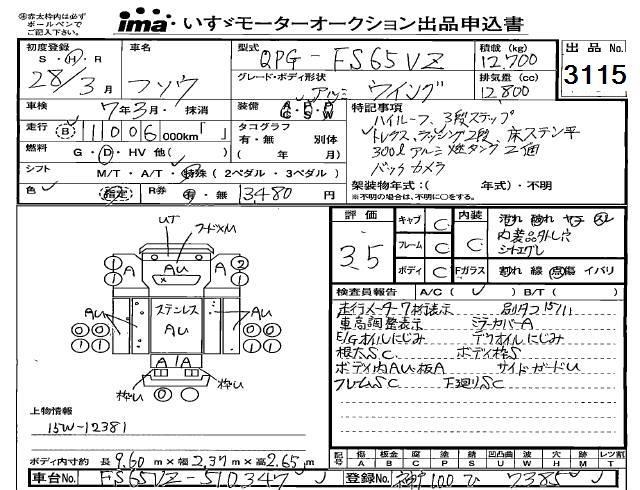 ※赤太枠内は必ず
ボールペンで
ご記入下さい。
ima いすゞモーターオークション出品申込書
初度登録 S・H・R 28/3月
車名 フソウ
型式 QPG-FS65VZ
グレード・ボディ形状 アルミ ウイング
積載(kg) 12,700
排気量(cc) 12,800
出品No. 3115
車検 7年3月・抹消
装備 A/C P/S P/W
走行 B 11006000km「 」
タコグラフ 有・無 別体
( 年 月)
燃料 G・D・HV 他( )
シフト M/T・A/T・特殊(2ペダル・3ペダル)
色 指定 R券 有・無 13,480円
特記事項
ハイルーフ、3段ステップ
トレクス、ラッシング2段、床ステン平
300ℓアルミ燃タンク2個
バックカメラ
架装物年式:( 年式)・不明
※不明の場合は、不明に○をする。
評価 3.5
キャブ C
フレーム C
ボディ C
内装 C
汚れ 破れ ヤニ スレ
内装品外し穴
シートエグレ
Fガラス 割れ 線 点傷 イバリ
検査員報告 A/C( ) B/T( )
走行メーター7桁表示 別タコ15/11
車高調整表示 ミラーカバーA
E/Gオイルにじみ デフオイルにじみ
根太SC ボディ枠S
ボディ内AU・板A サイドガードU
フレームSC 下廻りSC
UT フードメU
A AU A
AU ステンレス AU AU
A A
枠U 枠U
上物情報
15W-12381
ボディ内寸約 長9.60m×幅2.37m×高2.65m
記号 傷A 板金B 腐C 塗P サビS 凹凸曲U 波W 穴X 跡H 跡M レツ割T
車台No. FS65VZ-510347
登録No. 100 ひ 7385